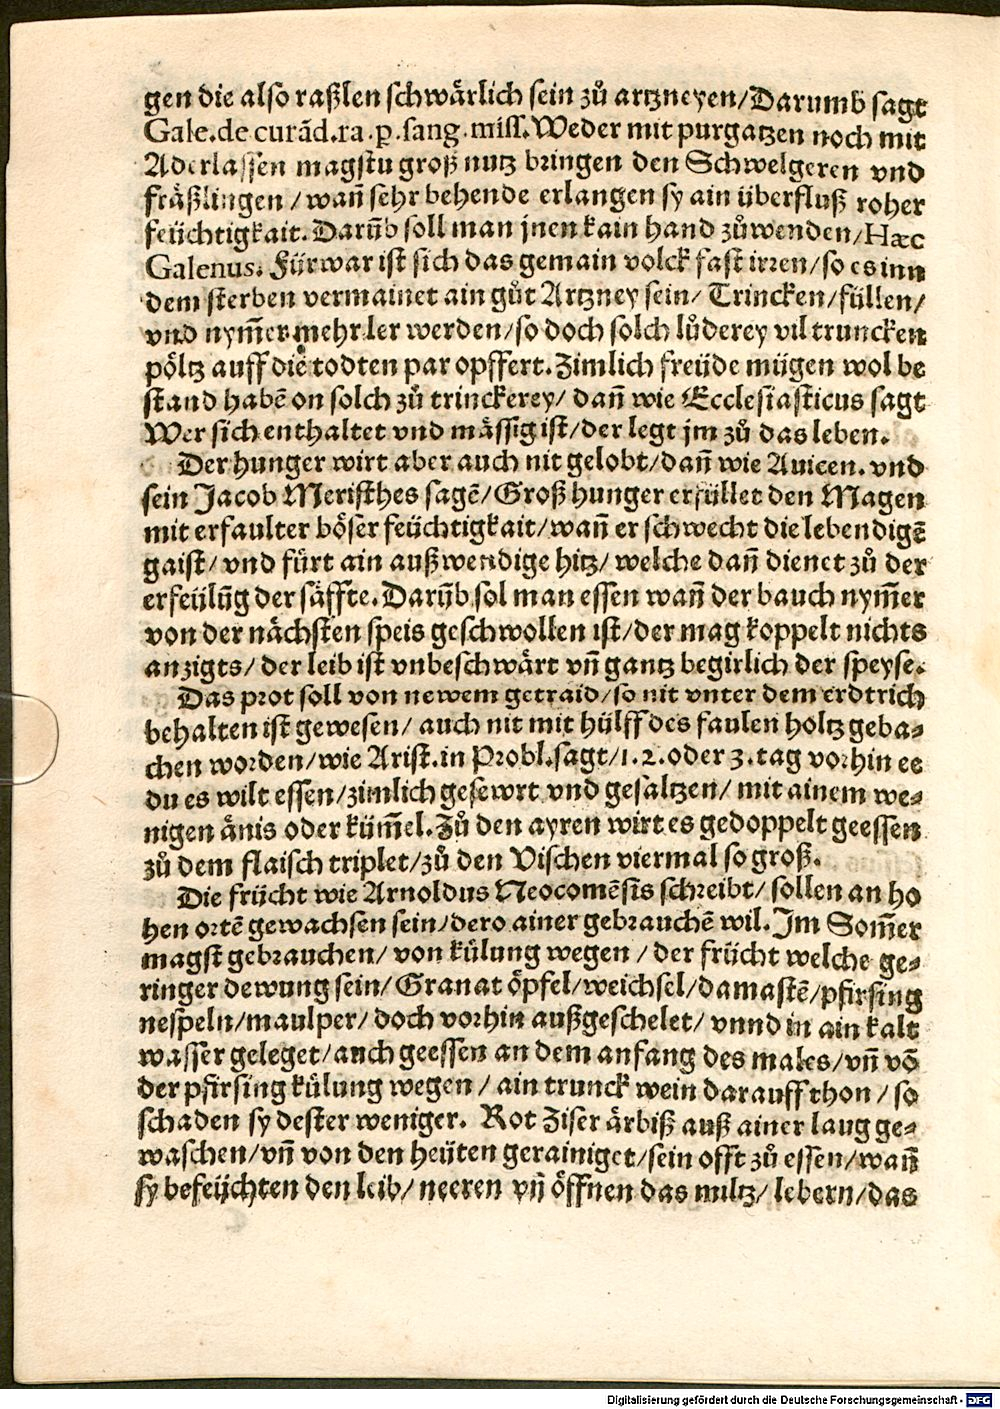 gen die also raßlen schwärlich sein zů artzneyen/Darumb sagt
Gale.de curãd.ra.ꝑ.sang.miss.Weder mit purgatzen noch mit
Aderlassen magstu groß nutz bringen den Schwelgeren vnd
fräßlingen /wañ sehr behende erlangen sy ain überfluß roher
feüchtigkait.Darũb soll man jnen kain hand zůwenden/Hæc
Galenus. Fürwar ist sich das gemain volck fast irren/so es inn
dem sterben vermainet ain gůt Artzney sein/ Trincken/füllen/
vnd nym̃er mehr ler werden/so doch solch lůderey vil truncken
pöltz auff die todten par opffert.Zimlich freüde mügen wol be
stand habẽ on solch zů trinckerey/ dañ wie Ecclesiasticus sagt
Wer sich enthaltet vnd mässig ist/der legt jm zů das leben.
Der hunger wirt aber auch nit gelobt/dañ wie Auicen. vnd
sein Jacob Meristhes sagẽ/Groß hunger erfüllet den Magen
mit erfaulter böser feüchtigkait/wañ er schwecht die lebendigẽ
gaist/ vnd fürt ain außwendige hitz/ welche dañ dienet zů der
erfeülũg der säffte.Darũb sol man essen wañ der bauch nym̃er
von der nächsten speis geschwollen ist/der mag koppelt nichts
anzigts/ der leib ist vnbeschwärt vñ gantz begirlich der speyse.
Das prot soll von newem getraid/so nit vnter dem erdtrich
behalten ist gewesen/ auch nit mit hülff des faulen holtz geba⸗
chen worden/wie Arist.in Probl.sagt/1.2.oder 3.tag vorhin ee
du es wilt essen/zimlich gesewrt vnd gesaltzen/ mit ainem we⸗
nigen änis oder küm̃el.Zů den ayren wirt es gedoppelt geessen
zů dem flaisch triplet/zů den Vischen viermal so groß.
Die frücht wie Arnoldus Neocomẽsis schreibt/ sollen an ho
hen ortẽ gewachsen sein/dero ainer gebrauchẽ wil.Im Som̃er
magst gebrauchen/ von külung wegen / der frücht welche ge⸗
ringer dewung sein/ Granat öpfel/weichsel/damastẽ/pfirsing
nespeln/maulper/ doch vorhin außgeschelet/ vnnd in ain kalt
wasser geleget/auch geessen an dem anfang des males/vñ võ
der pfirsing külung wegen / ain trunck wein darauff thon / so
schaden sy dester weniger. Rot Ziser ärbiß auß ainer laug ge⸗
waschen/vñ von den heüten gerainiget/sein offt zů essen/wañ
sy befeüchten den leib/ neeren vñ öffnen das miltz/ lebern/das
Digitalisierung gefördert durch die Deutsche Forschungsgemeinschaft - DFG